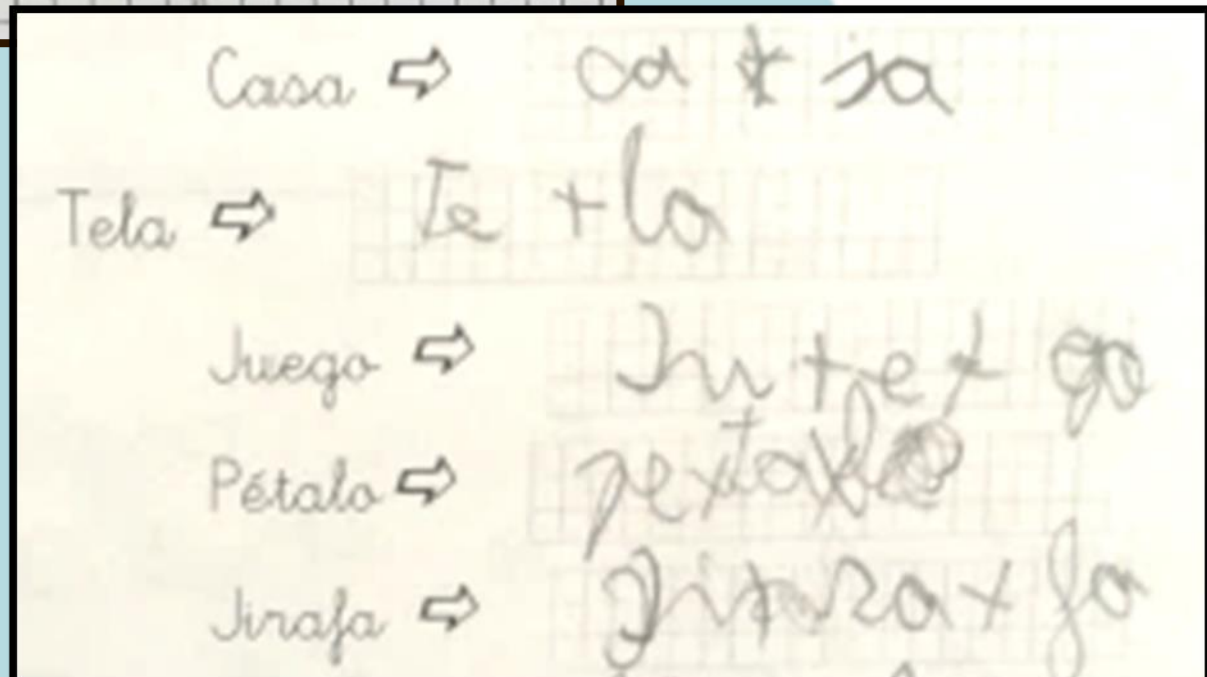 Casa ⇨ ca + sa
Tela ⇨ Te + la
Juego ⇨ Ju + e + go
Pétalo ⇨ pe + ta + lo
Jirafa ⇨ Ji + ra + fa